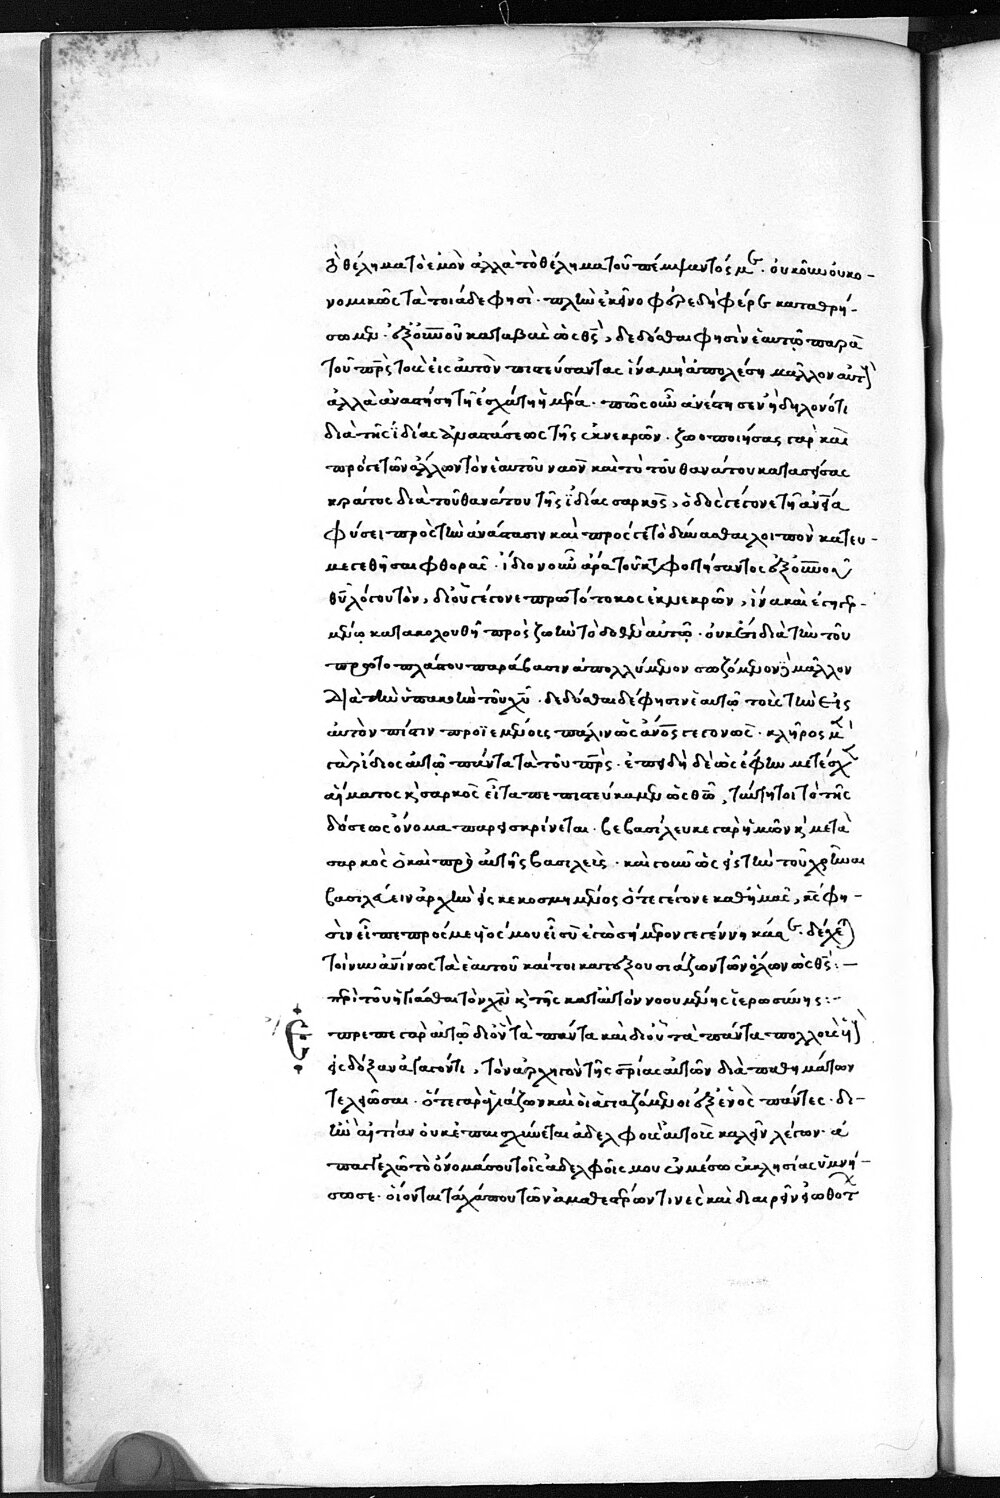 θέλημα τὸ ἐμὸν ἀλλὰ τὸ θέλημα τοῦ πέμψαντός με. οὐκοῦν οὐκο-
νομικῶς τὰ τοιάδε φησὶ. πλὴν ἐκεῖνο φέρε δὴ φέρε καταθρή-
σωμεν. ἐξ οὐνοῦ καταβὰς ὡς θς, δεδόσθαι φησὶν ἑαυτῷ παρὰ
τοῦ πρς τοὺς εἰς αὐτὸν πιστεύσαντας ἵνα μὴ ἀπολέσῃ μᾶλλον αὐτ
ἀλλὰ ἀναστήσῃ τῇ ἐσχάτῃ ἡμέρα. πῶς οὖν ἀνέστησεν ἢ δηλονότι
διὰ τῆς ἰδίας ἀναστάσεως τῆς ἐκ νεκρῶν. ζωοποιήσας γὰρ καὶ
πρό γε τῶν ἄλλων τὸν ἑαυτοῦ ναὸν καὶ τὸ τοῦ θανάτου κατασείσας
κράτος διὰ τοῦ θανάτου τῆς ἰδίας σαρκὸς, ὁδὸς γέγονε τῇ ἀνα
φύσει πρὸς τὴν ἀνάστασιν καὶ πρός γε τὸ δύνασθαι λοιπὸν κατευ-
μεγεθῆσαι φθορᾶς. ἴδιον οὖν ἄρα τοῦ καταφοιτήσαντος ἐξ οὐνοῦ
θυ λόγου τὸν, δι' οὗ γέγονε πρωτότοκος ἐκ νεκρῶν, ἵνα καὶ ἐγηγερ-
μένῳ κατακολουθῇ πρὸς ζωὴν τὸ δοθὲν αὐτῷ. οὐκ ἔτι διὰ τὴν τοῦ
πρωτοπλάστου παράβασιν ἀπολλύμενον σωζόμενον δὲ μᾶλλον
διὰ τὴν ὑπακοὴν τοῦ χυ. δεδόσθαι δέ φησιν ἑαυτῷ τοὺς τὴν εἰς
αὐτὸν πίστιν προϊεμένοις πάλιν ὡς ἀνος γεγονὼς. κλῆρος μ
γὰρ ἴδιος αὐτῷ πάντα τὰ τοῦ πρς. ἐπειδὴ δὲ ὡς ἔφην μετέσχ
αἵματος κ σαρκὸς εἶτα πεπιστεύκαμεν ὡς θῶ, ταύτῃτοι τὸ τῆς
δόσεως ὄνομα παρεισκρίνεται. βεβασίλευκε γὰρ ἡμῶν κ μετὰ
σαρκὸς ὁ καὶ πρὸ αὐτῆς βασιλεὺς. καὶ γοῦν ὡς εἰς τὴν τοῦ χρῆναι
βασιλεύειν ἀρχὴν εἰσκεκοσμημένος ὅτε γέγονε καθ' ἡμᾶς, κς ἔφη-
σὶν εἶπε πρός με υἱός μου εἶ σὺ ἐγὼ σήμερον γεγέννηκά σε. δέχετ
τοίνυν ἀνίνως τὰ ἑαυτοῦ καίτοι κατεξουσιάζων τῶν ὅλων ὡς θς:–
περὶ τοῦ ἡγιάσθαι τὸν χν κ τῆς κατ' αὐτὸν νοουμένης ἱερωσύνης:–
πρεπε γὰρ αὐτῷ δι' ὃν τὰ πάντα καὶ δι' οὗ τὰ πάντα πολλοὺς υἱ
εἰς δόξαν ἀγαγόντι, τὸν ἀρχηγὸν τῆς σριας αὐτῶν διὰ παθημάτων
τελειῶσαι. ὅ τε γὰρ ἁγιάζων καὶ οἱ ἁγιαζόμενοι ἐξ ἑνὸς πάντες. δι-
ὴν αἰτίαν οὐκ ἐπαισχύνεται ἀδελφοὺς αὐτοὺς καλεῖν λέγων. ἀ
παγγελῶ τὸ ὄνομά σου τοῖς ἀδελφοῖς μου ἐν μέσῳ ἐκκλησίας ὑμνή-
σω σε. οἴονται τάχα που τῶν ἀμαθεστέρων τινὲς καὶ διαιρεῖν εἰωθότ